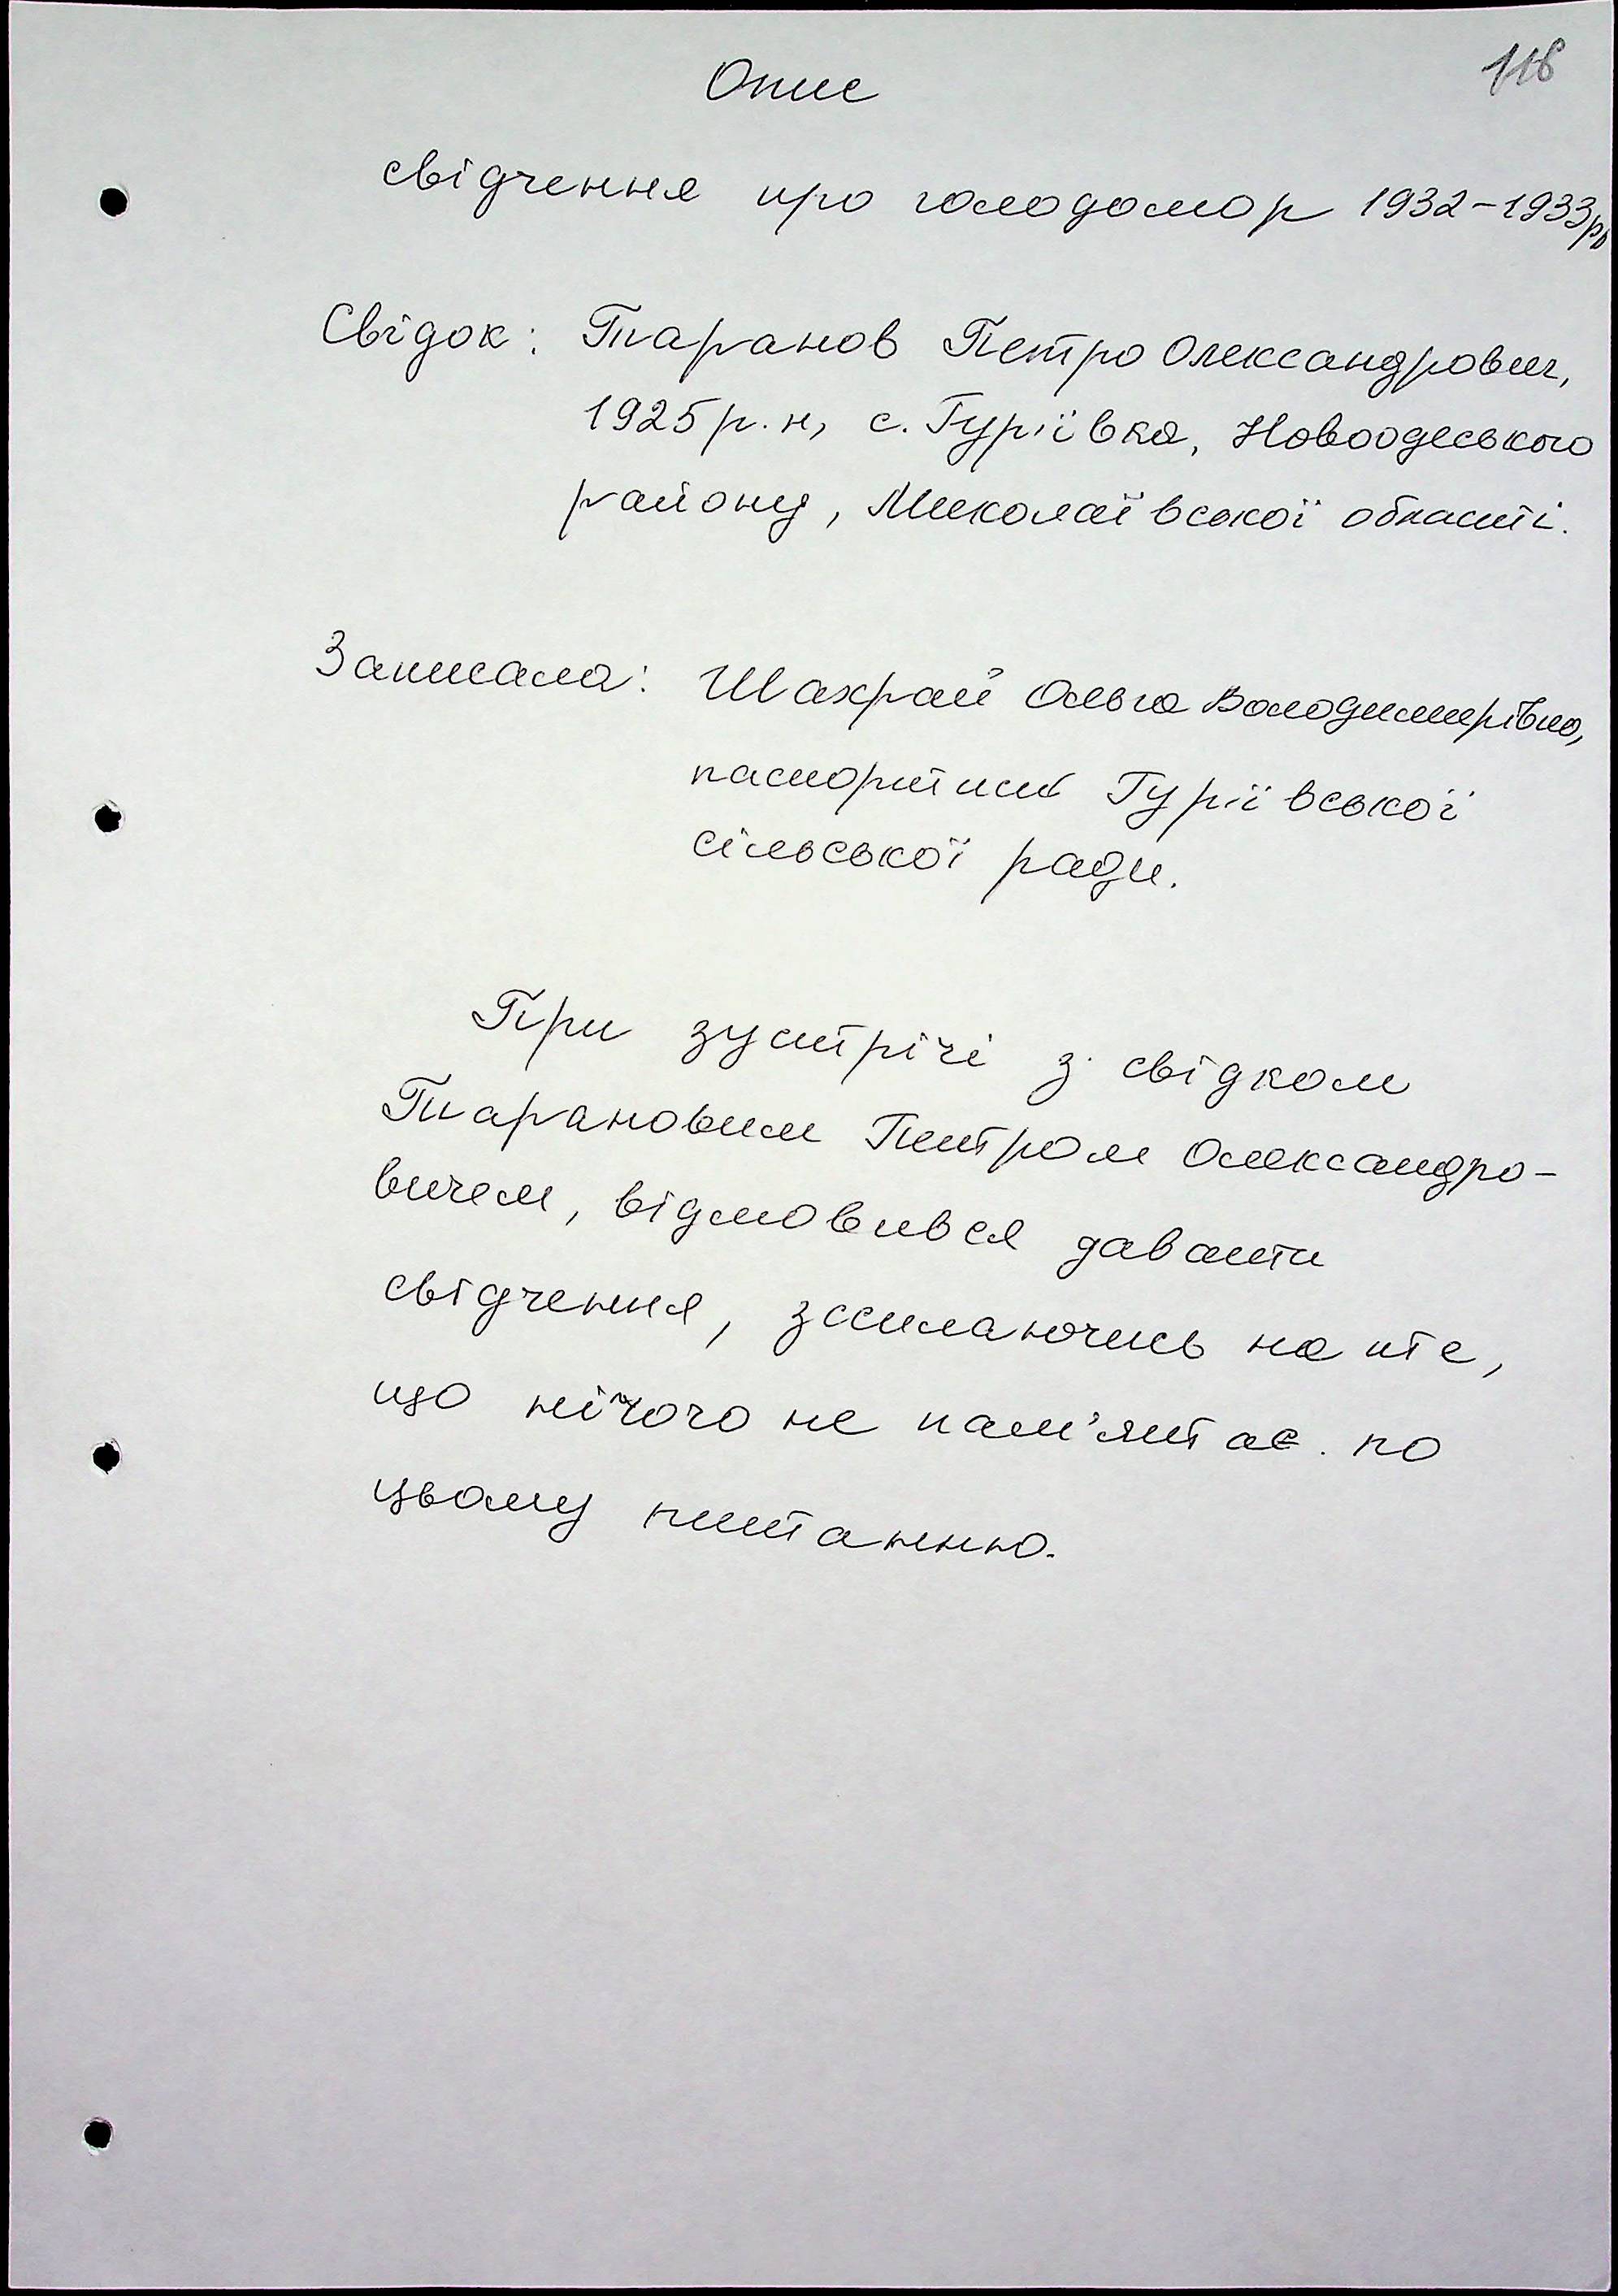 118
Опис
свідчення про голодомор 1932-1933рр
Свідок: Таранов Петро Олександрович,
1925 р.н, с. Гур'ївка, Новоодеського
району, Миколаївської області.
Записала: Шахрай Ольга Володимирівна,
паспортист Гур'ївської
сільської ради.
При зустрічі з свідком
Тарановим Петром Олександро-
вичем, відмовився давати
свідчення, зсилаючись на те,
що нічого не пам'ятає. по
цьому питанню.